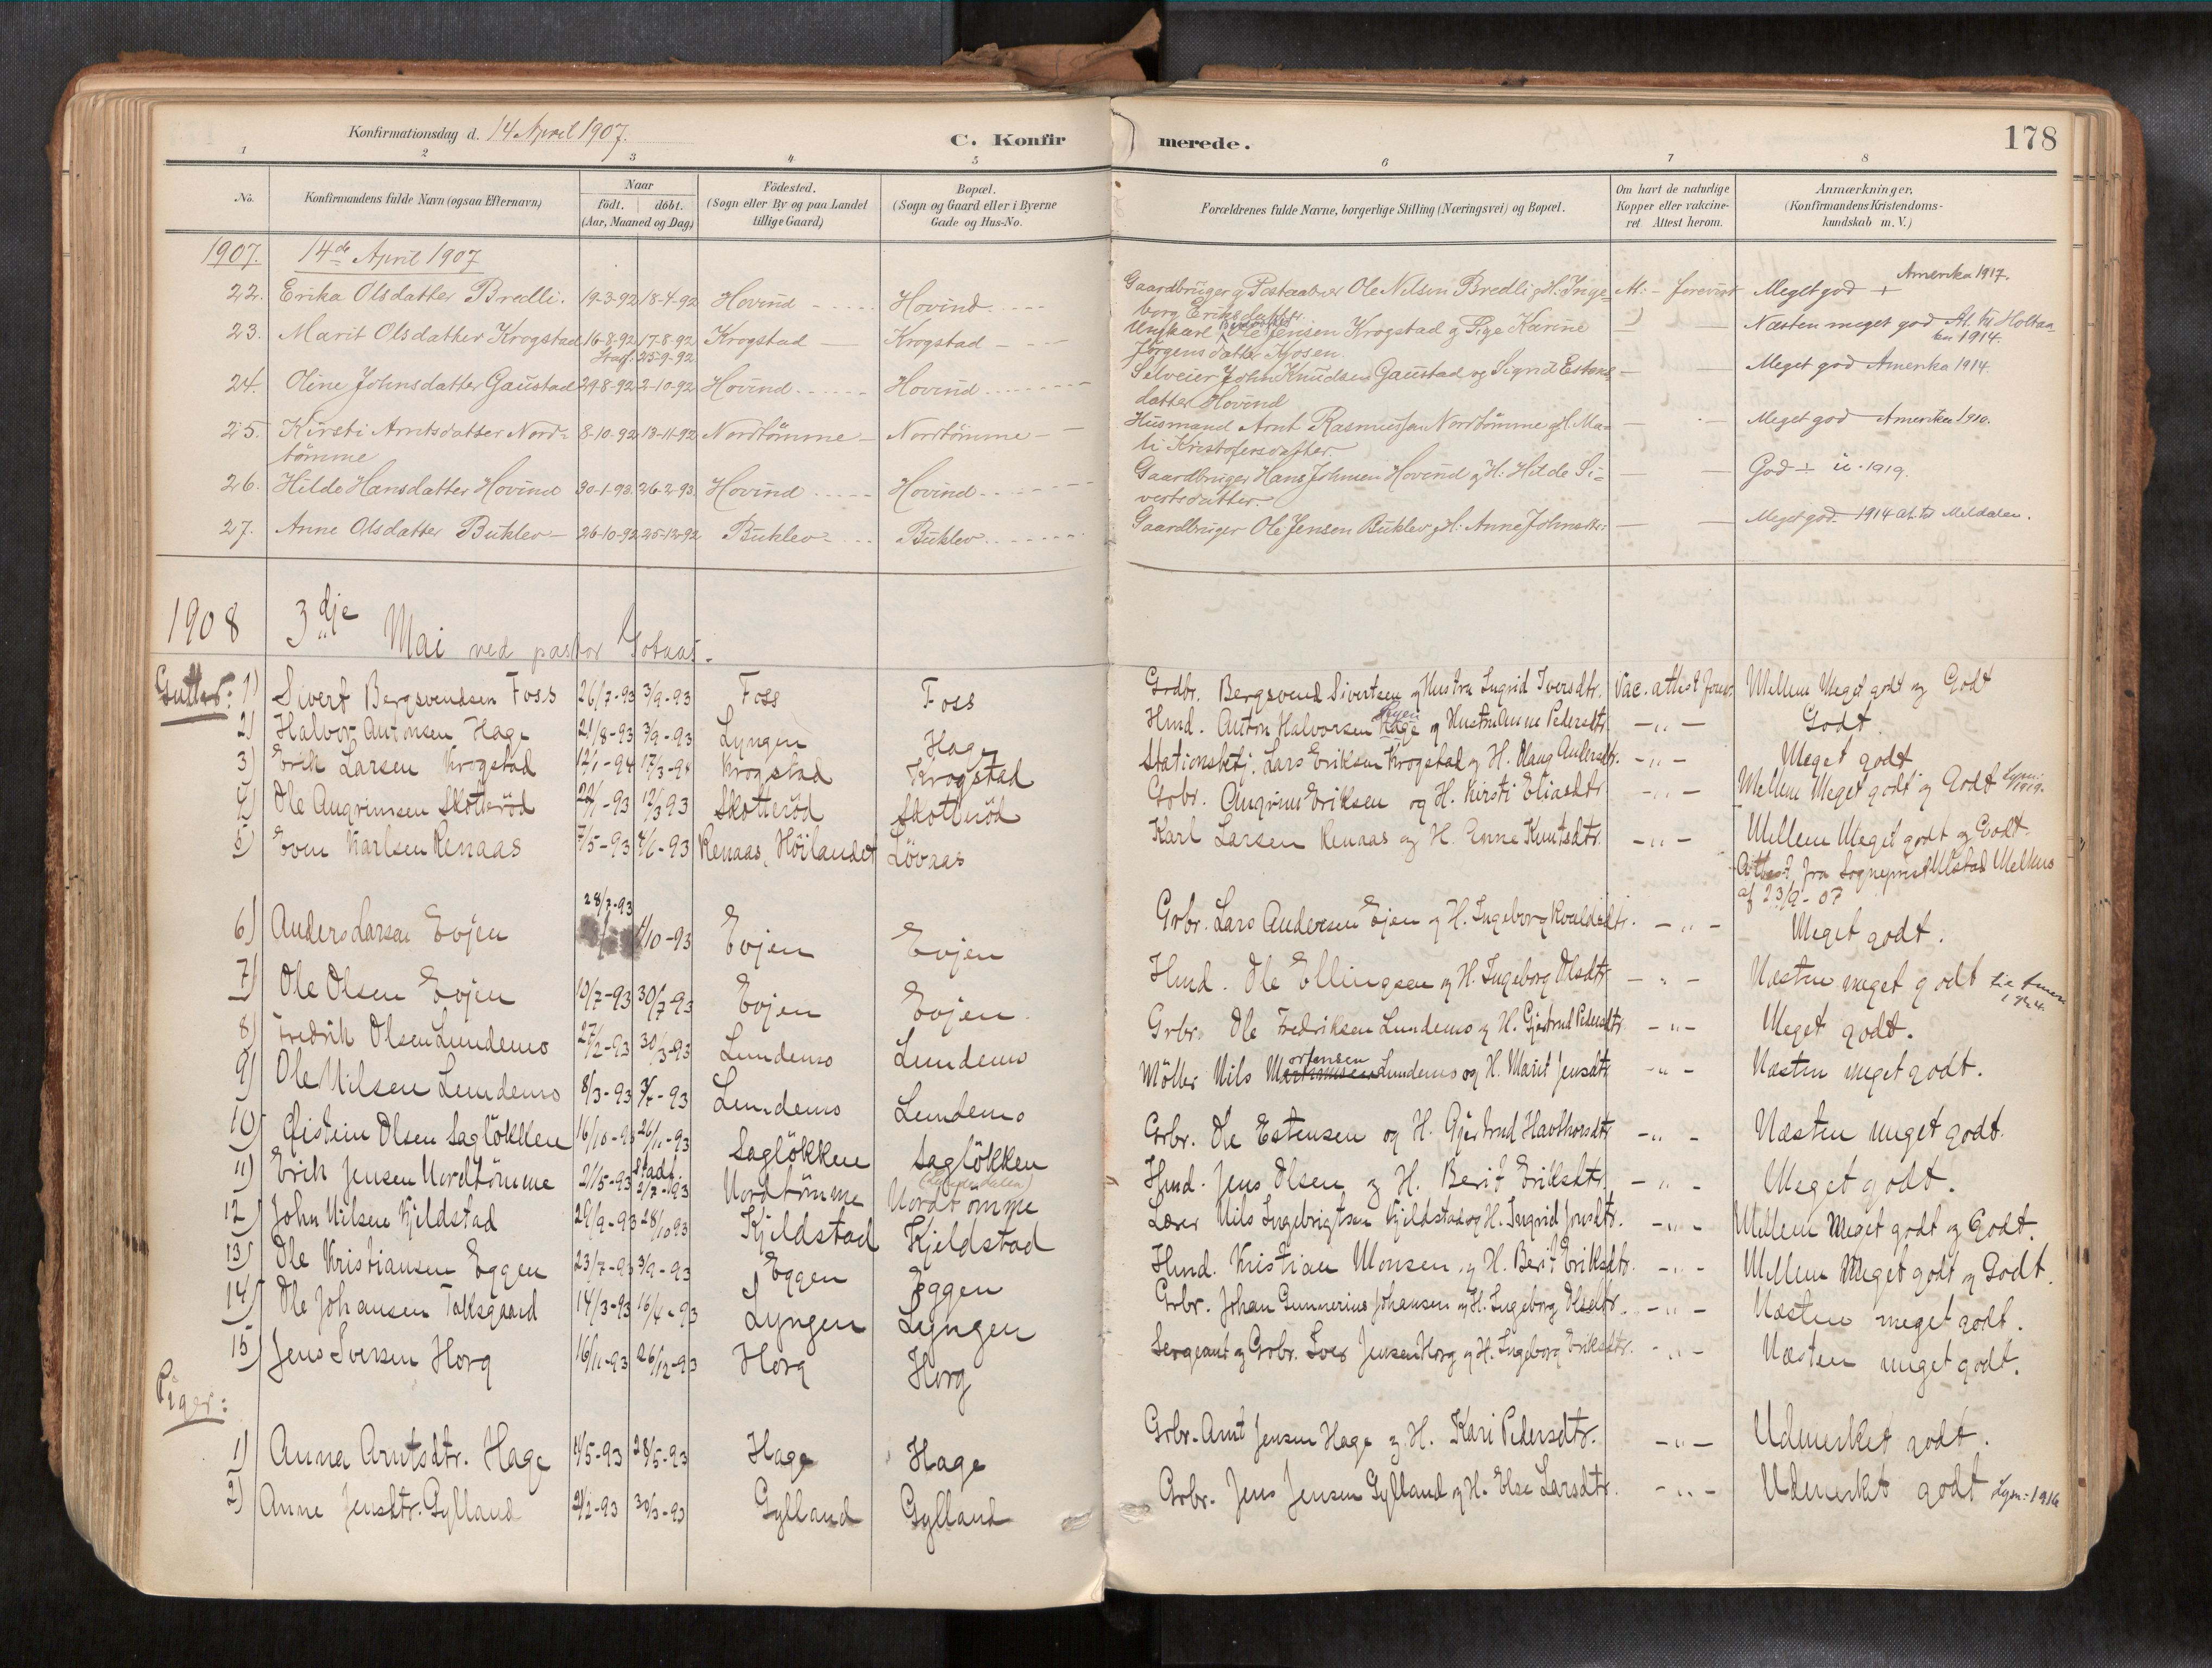 Konfirmationsdag d. 14 April 1907.
C. Konfir merede. 178
1 2 3 4 5 6 7 8
No. Konfirmandens fulde Navn (ogsaa Efternavn) Naar födt. döbt. (Aar, Maaned og Dag) Födested. (Sogn eller By og paa Landet tillige Gaard) Bopæl. (Sogn og Gaard eller i Byerne Gade og Hus-No. Forældrenes fulde Navne, borgerlige Stilling (Næringsvei) og Bopæl. Om havt de naturlige Kopper eller vakcineret Attest herom. Anmærkninger. (Konfirmandens Kristendomskundskab m. V.)
1907. 14de April 1907
22. Erika Olsdatter Bredli. 19-3-92 18-4-92 Hovind Hovind Gaardbruger og Postaabner Ole Nilsen Bredli og H: Inge- At: - forevist Meget god + Amerika 1917.
borg Eriksdatter
23. Marit Olsdatter Krogstad 16-8-92 17-8-92 Krogstad Krogstad Ungkarl Ole Jensen Krogstad og Pige Karine Næsten meget god At. til Holtaa-
Stadf: 25-9-92 Jörgensdatter Kjosen. len 1914.
24. Oline Johnsdatter Gaustad 29-8-92 2-10-92 Hovind Hovind Selveier John Knudsen Gaustad og Sigrid Estens- Meget god Amerika 1914.
datter Hovind
25. Kirsti Arntsdatter Nord- 8-10-92 13-11-92 Nordtömme Nordtömme Husmand Arnt Rasmussen Nordtömme og H. Ma- Meget god Amerika 1910.
tömme ti Kristofersdatter.
26. Hilde Hansdatter Hovind 30-1-93. 26-2-93. Hovind Hovind Gaardbruger Hans Johnsen Hovind og H: Hilde Si- God + u. 1919.
vertsdatter.
27. Anne Olsdatter Buklev 26-10-92 25-12-92 Buklev Buklev Gaardbruger Ole Jensen Buklev og H: Anne Johnsdtr: Meget god. 1914 at. til Meldalen.
1908 3dje Mai ved pastor
Gutter: 1) Sivert Bergsvendsen Foss 26/7-93 3/9-93 Foss Foss Grdbr. Bergsvend Sivertsen og Hustru Ingrid Iversdtr. Vac. attest Mellem Meget godt og Godt
2) Halvor Antonsen Hage 21/8-93 3/9-93 Lyngen Hage Hmd. Anton Halvorsen Hage og Hustru Anne Pedersdtr. -„- Godt.
3) Erik Larsen Krogstad 12/1-94 17/3-94 Krogstad Krogstad Stationsbetj. Lars Eriksen Krogstad og H. Olaug Andersdtr. -„- Meget godt
4) Ole Angrimsen Skotteröd 22/1-93 12/3 93 Skotteröd Skotteröd Grbr. Angrim Eriksen og H. Kirsti Eliasdtr -„- Mellem Meget godt og Godt 1919.
5) Even Karlsen Renaas 7/5-93 4/6-93 Renaas, Höilandet Lövaas Karl Larsen Renaas og H. Anne Knutsdtr. -„- Mellem Meget godt og Godt.
Attest fra Sogneprest Ulstad Melhus
af 23/9-07
6) Anders Larsen Evjen 28/7-93 1/10-93 Evjen Evjen Grbr. Lars Andersen Evjen og H. Ingeborg -„- Meget godt.
7) Ole Olsen Evjen 10/7-93 30/7-93 Evjen Evjen. Hmd. Ole Ellingsen og H. Ingeborg Olsdtr. -„- Næsten meget godt
8) Fredrik Olsen Lundemo 27/2-93 30/3-93 Lundemo Lundemo Grbr. Ole Fredriksen Lundemo og H. Gjertrud Pedersdtr. -„- Meget godt.
9) Ole Nilsen Lundemo 8/3-93 Lundemo Lundemo Möller Nils Mortensen Lundemo og H. Marit Jensdtr. -„- Næsten meget godt.
10) Øistein Olsen Saglökken 16/10-93 26/11-93 Saglökken Saglökken Grbr. Ole Estensen og H. Gjertrud Havthorsdtr. -„- Næsten meget godt.
11) Erik Jensen Nordtömme 21/5-93 Stadf. 2/7-93 Nordtömme Nordtömme Hmd. Jens Olsen og H. Berit Eriksdtr. -„- Meget godt.
12) John Nilsen Kjeldstad 29/9-93 28/10 93 Kjeldstad Kjeldstad Lærer Nils Ingebrigtsen Kjeldstad og H. Ingrid Jonsdtr. -„- Mellem Meget godt og Godt.
13) Ole Kristiansen Eggen 23/7-93 3/9-93 Eggen Eggen Hmd. Kristian Monsen og H. Berit Eriksdtr. -„- Mellem Meget godt og Godt.
14) Ole Johansen Talksgaard 14/3-93 16/4-93 Lyngen Lyngen Grbr. Johan Gunnerius Johansen og H. Ingeborg Olsdtr. -„- Næsten meget godt.
15) Jens Iversen Horg 16/11-93 26/12-93 Horg Horg Sergeant og Grbr. Iver Jensen Horg og H. Ingeborg Eriksdtr. -„- Næsten meget godt.
Piger:
1) Anna Arntsdtr. Hage 1/5-93 28/5-93 Hage Hage Grbr. Arnt Jensen Hage og H. Kari Pedersdtr. -„- Udmerket godt.
2) Anne Jensdtr. Gylland 21/2-93 30/3-93 Gylland Gylland Grbr. Jens Jensen Gylland og H. Else Larsdtr. -„- Udmerket godt Lysn: 1916